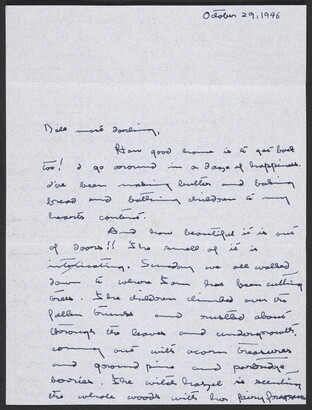 October 29, 1946
Dell most darling,
How good home is to get back
too! I go around in a daze of happiness.
I've been making butter and baking
bread and bathing children to my
hearts content.
And how beautiful it is out
of doors!! The smell of it is
intoxicating. Sunday we all walked
down to where Sam has been cutting
trees. The children climbed over the
fallen trunks and rustled about
through the leaves and undergrowth,
coming out with acorn treasures
and ground pine and partridge
berries. The wild hazel is scenting
the whole woods with her fairy fragrance